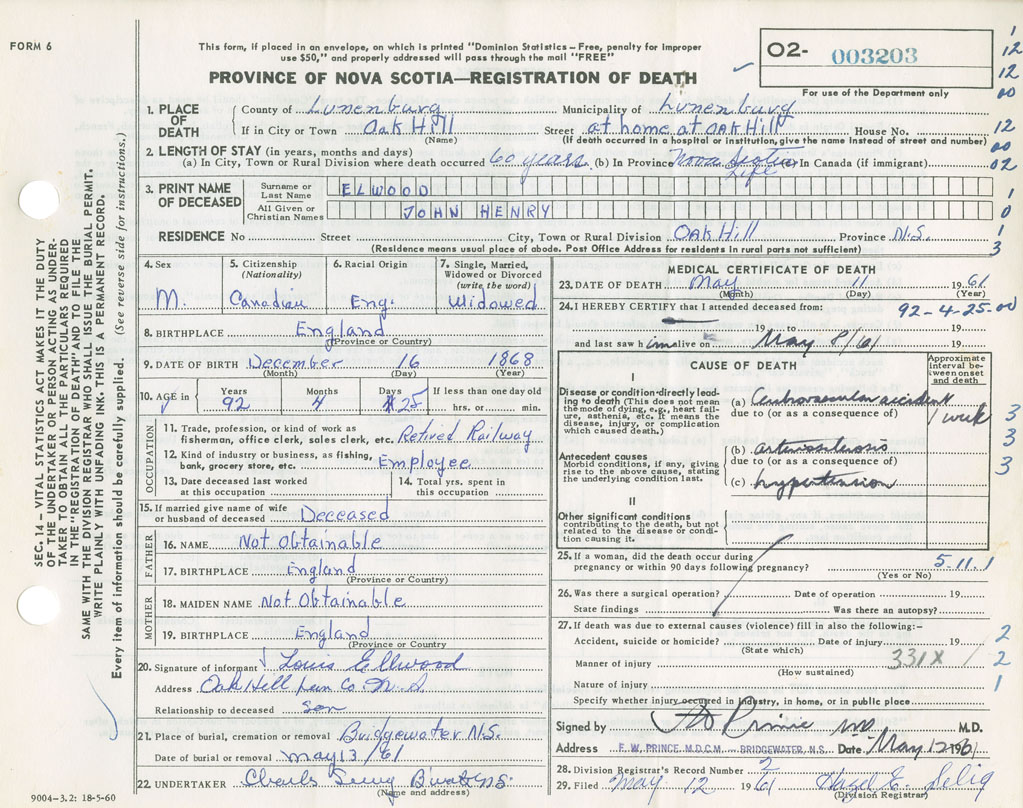 FORM 6
This form, if placed in an envelope, on which is printed "Dominion Statistics – Free, penalty for improper
use $50," and properly addressed will pass through the mail "FREE"
PROVINCE OF NOVA SCOTIA—REGISTRATION OF DEATH
O2- 003203
For use of the Department only
1
12
12
00
12
00
02
1
0
1
3
SEC. 14 – VITAL STATISTICS ACT MAKES IT THE DUTY
OF THE UNDERTAKER OR PERSON ACTING AS UNDER-
TAKER TO OBTAIN ALL THE PARTICULARS REQUIRED
IN THE "REGISTRATION OF DEATH" AND TO FILE THE
SAME WITH THE DIVISION REGISTRAR WHO SHALL ISSUE THE BURIAL PERMIT.
WRITE PLAINLY WITH UNFADING INK. THIS IS A PERMANENT RECORD.
Every item of information should be carefully supplied. (See reverse side for instructions.)
1. PLACE OF DEATH
County of Lunenburg Municipality of Lunenburg
If in City or Town Oak Hill Street at home at Oak Hill House No.
(Name) (If death occurred in a hospital or institution, give the name instead of street and number)
2. LENGTH OF STAY (in years, months and days)
(a) In City, Town or Rural Division where death occurred 60 years (b) In Province Nova Scotia (c) In Canada (if immigrant)
Life
3. PRINT NAME OF DECEASED
Surname or Last Name ELWOOD
All Given or Christian Names JOHN HENRY
RESIDENCE No Street City, Town or Rural Division Oak Hill Province N.S.
(Residence means usual place of abode. Post Office Address for residents in rural parts not sufficient)
4. Sex
M.
5. Citizenship
(Nationality)
Canadian
6. Racial Origin
Eng.
7. Single, Married, Widowed or Divorced
(write the word)
Widowed
8. BIRTHPLACE England
(Province or Country)
9. DATE OF BIRTH December 16 1868
(Month) (Day) (Year)
10. AGE in
Years 92
Months 4
Days 25
If less than one day old
hrs. or min.
OCCUPATION
11. Trade, profession, or kind of work as
fisherman, office clerk, sales clerk, etc. Retired Railway
12. Kind of industry or business, as fishing,
bank, grocery store, etc. Employee
13. Date deceased last worked
at this occupation
14. Total yrs. spent in
this occupation
15. If married give name of wife
or husband of deceased Deceased
FATHER
16. NAME Not Obtainable
17. BIRTHPLACE England
(Province or Country)
MOTHER
18. MAIDEN NAME Not Obtainable
19. BIRTHPLACE England
(Province or Country
20. Signature of informant Louis Ellwood
Address Oak Hill Lun Co. N.S.
Relationship to deceased son
21. Place of burial, cremation or removal Bridgewater N.S.
Date of burial or removal May 13/61
22. UNDERTAKER
(Name and address)
9004–3.2: 18-5-60
MEDICAL CERTIFICATE OF DEATH
23. DATE OF DEATH May 11 1961
(Month) (Day) (Year)
24. I HEREBY CERTIFY that I attended deceased from: 92-4-25-00
19 to 19
and last saw him alive on May 8/61 19
CAUSE OF DEATH
Approximate interval between onset and death
I
Disease or condition directly leading to death (This does not mean the mode of dying, e.g., heart failure, asthenia, etc. It means the disease, injury, or complication which caused death.)
(a) accident 1 week
due to (or as a consequence of)
Antecedent causes
Morbid conditions, if any, giving rise to the above cause, stating the underlying condition last.
(b) arteriosclerosis
due to (or as a consequence of)
(c) hypertension
3
3
3
II
Other significant conditions
contributing to the death, but not related to the disease or condition causing it.
25. If a woman, did the death occur during
pregnancy or within 90 days following pregnancy? 5-11.1
(Yes or No)
26. Was there a surgical operation? Date of operation 19
State findings Was there an autopsy?
27. If death was due to external causes (violence) fill in also the following:–
Accident, suicide or homicide? Date of injury 19
(State which)
Manner of injury 331X
(How sustained)
Nature of injury
Specify whether injury occurred in industry, in home, or in public place
2
2
1
Signed by Prince M.D.
Address F. W. PRINCE M.D.C.M. BRIDGEWATER, N.S. Date May 12 1961
28. Division Registrar's Record Number 2
29. Filed May 12 1961 Hazel E. Selig
(Division Registrar)